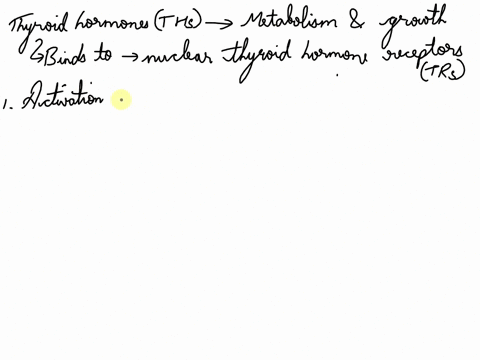 Thyroid hormones (THs) → Metabolism & growth
↳ Binds to → nuclear thyroid hormone receptors
(TRs)
1. Activation